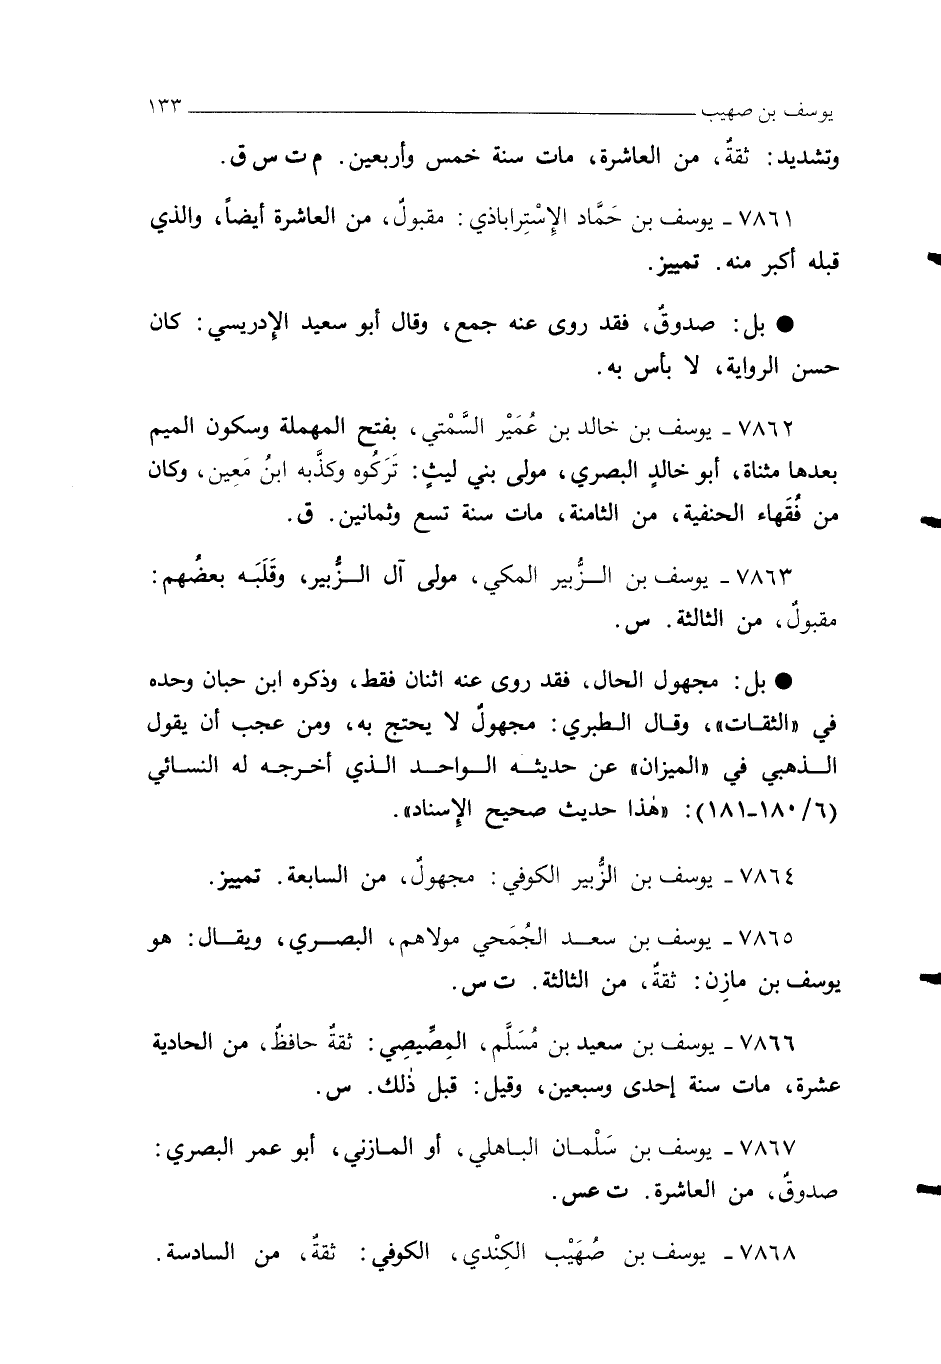 يوسف بن صهيب ١٣٣
وتشديد: ثقةٌ، من العاشرة، مات سنة خمس وأربعين. م ت س ق.
٧٨٦١ - يوسف بن حَمَّاد الإِسْتِراباذي: مقبولٌ، من العاشرة أيضاً، والذي
قبله أكبر منه. تمييز.
● بل: صدوقٌ، فقد روى عنه جمع، وقال أبو سعيد الإدريسي: كان
حسن الرواية، لا بأس به.
٧٨٦٢ - يوسف بن خالد بن عُمَيْر السَّمْتي، بفتح المهملة وسكون الميم
بعدها مثناة، أبو خالدٍ البصري، مولى بني ليثٍ: تَرَكُوه وكذَّبه ابنُ مَعِين، وكان
من فُقَهاء الحنفية، من الثامنة، مات سنة تسع وثمانين. ق.
٧٨٦٣ - يوسف بن الزُّبير المكي، مولى آل الزُّبير، وقَلَبَه بعضُهم:
مقبولٌ، من الثالثة. س.
● بل: مجهول الحال، فقد روى عنه اثنان فقط، وذكره ابن حبان وحده
في «الثقات»، وقال الطبري: مجهولٌ لا يحتج به، ومن عجب أن يقول
الذهبي في «الميزان» عن حديثه الواحد الذي أخرجه له النسائي
(٦/ ١٨٠-١٨١): «هٰذا حديث صحيح الإسناد».
٧٨٦٤ - يوسف بن الزُّبير الكوفي: مجهولٌ، من السابعة. تمييز.
٧٨٦٥ - يوسف بن سعد الجُمَحي مولاهم، البصري، ويقال: هو
يوسف بن مازِن: ثقةٌ، من الثالثة. ت س.
٧٨٦٦ - يوسف بن سعيد بن مُسَلَّم، المِصِّيصِي: ثقةٌ حافظٌ، من الحادية
عشرة، مات سنة إحدى وسبعين، وقيل: قبل ذٰلك. س.
٧٨٦٧ - يوسف بن سَلْمان الباهلي، أو المازني، أبو عمر البصري:
صدوقٌ، من العاشرة. ت عس.
٧٨٦٨ - يوسف بن صُهَيْب الكِنْدي، الكوفي: ثقةٌ، من السادسة.